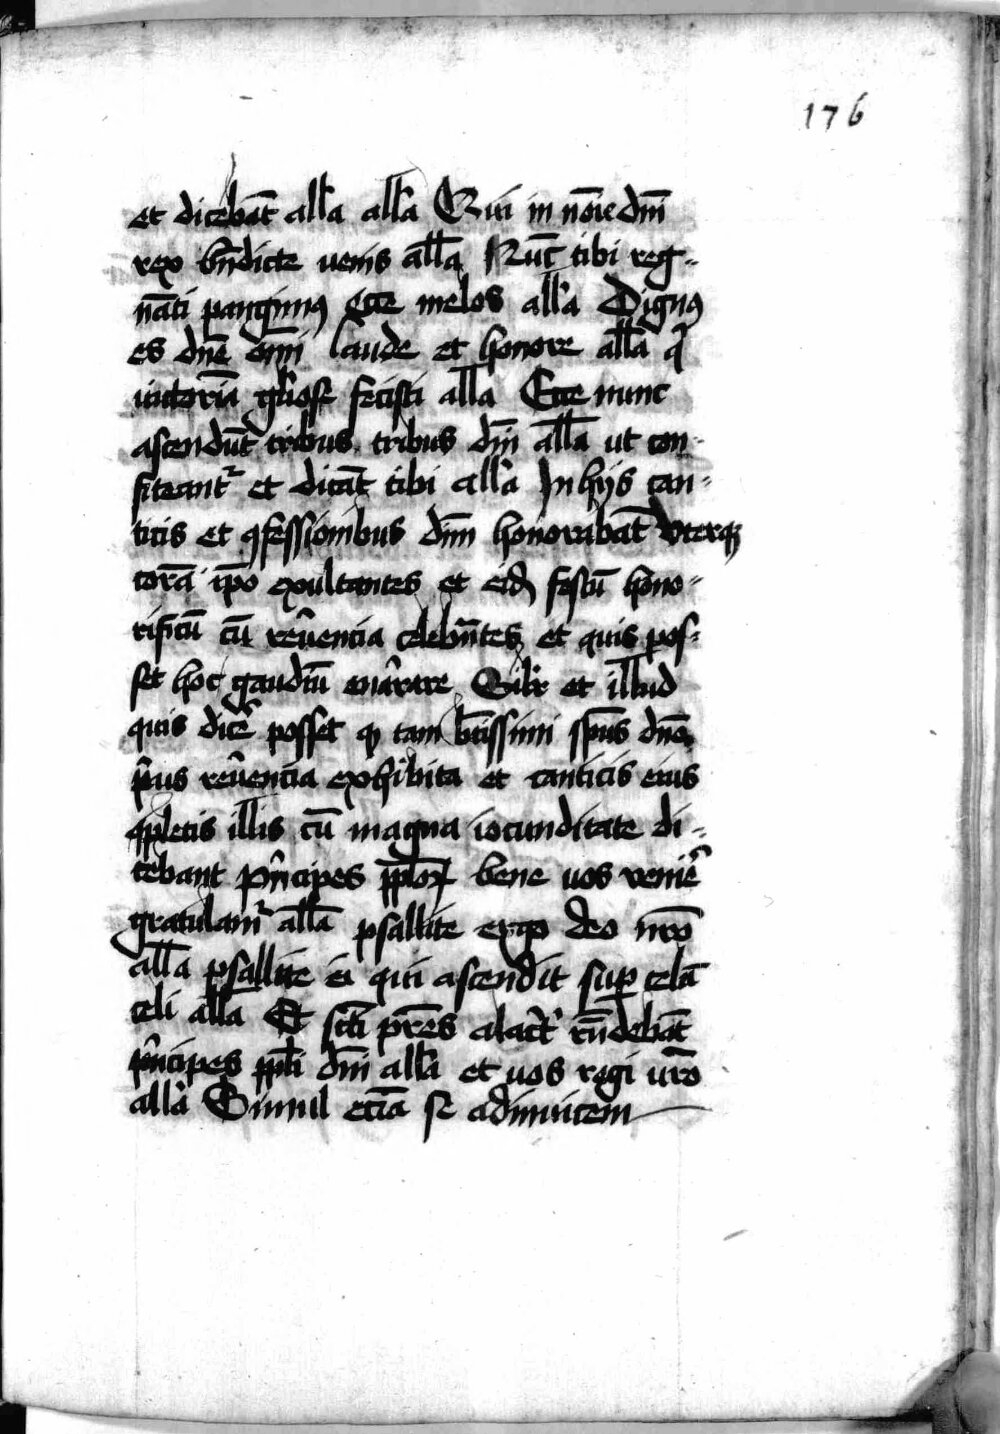 176
et dicebāt all'a all'a Qui in nōie dn̄i
rex bn̄dicte venis all'a Nūc tibi reg-
nāti pangimus Ecce melos all'a Dignus
es dn̄e om̄i laude et honore all'a q
victoriā gl'iose fecisti all'a Ecce nunc
ascendūt tribus tribus dn̄i all'a ut con-
fiteant' et dicāt tibi all'a In hijs can-
ticis et ꝯfessionibus dn̄m honorabāt
corā ip̄o exultantes et eid' festū hono-
rificū cū reu'encia celebn̄tes et quis pos-
set hoc gaudiū enarrare Sil'r et illud
quis dic'e posset ꝙ tam btissimi spūs dn̄o
p'us reu'encia exhibita et canticis eius
ꝯpletis illis cū magna iocunditate di-
cebant p'ncipes pp̄loꝝ bene vos venie'
gratulam' all'a psallite ergo deo nr̄o
all'a psallite ei qui ascendit sup celū
celi all'a Et sc̄ti pr̄es alac't' rn̄debāt
p'ncipes pp̄li dn̄i all'a et vos regi vr̄o
all'a Simul eciā se adinuicem